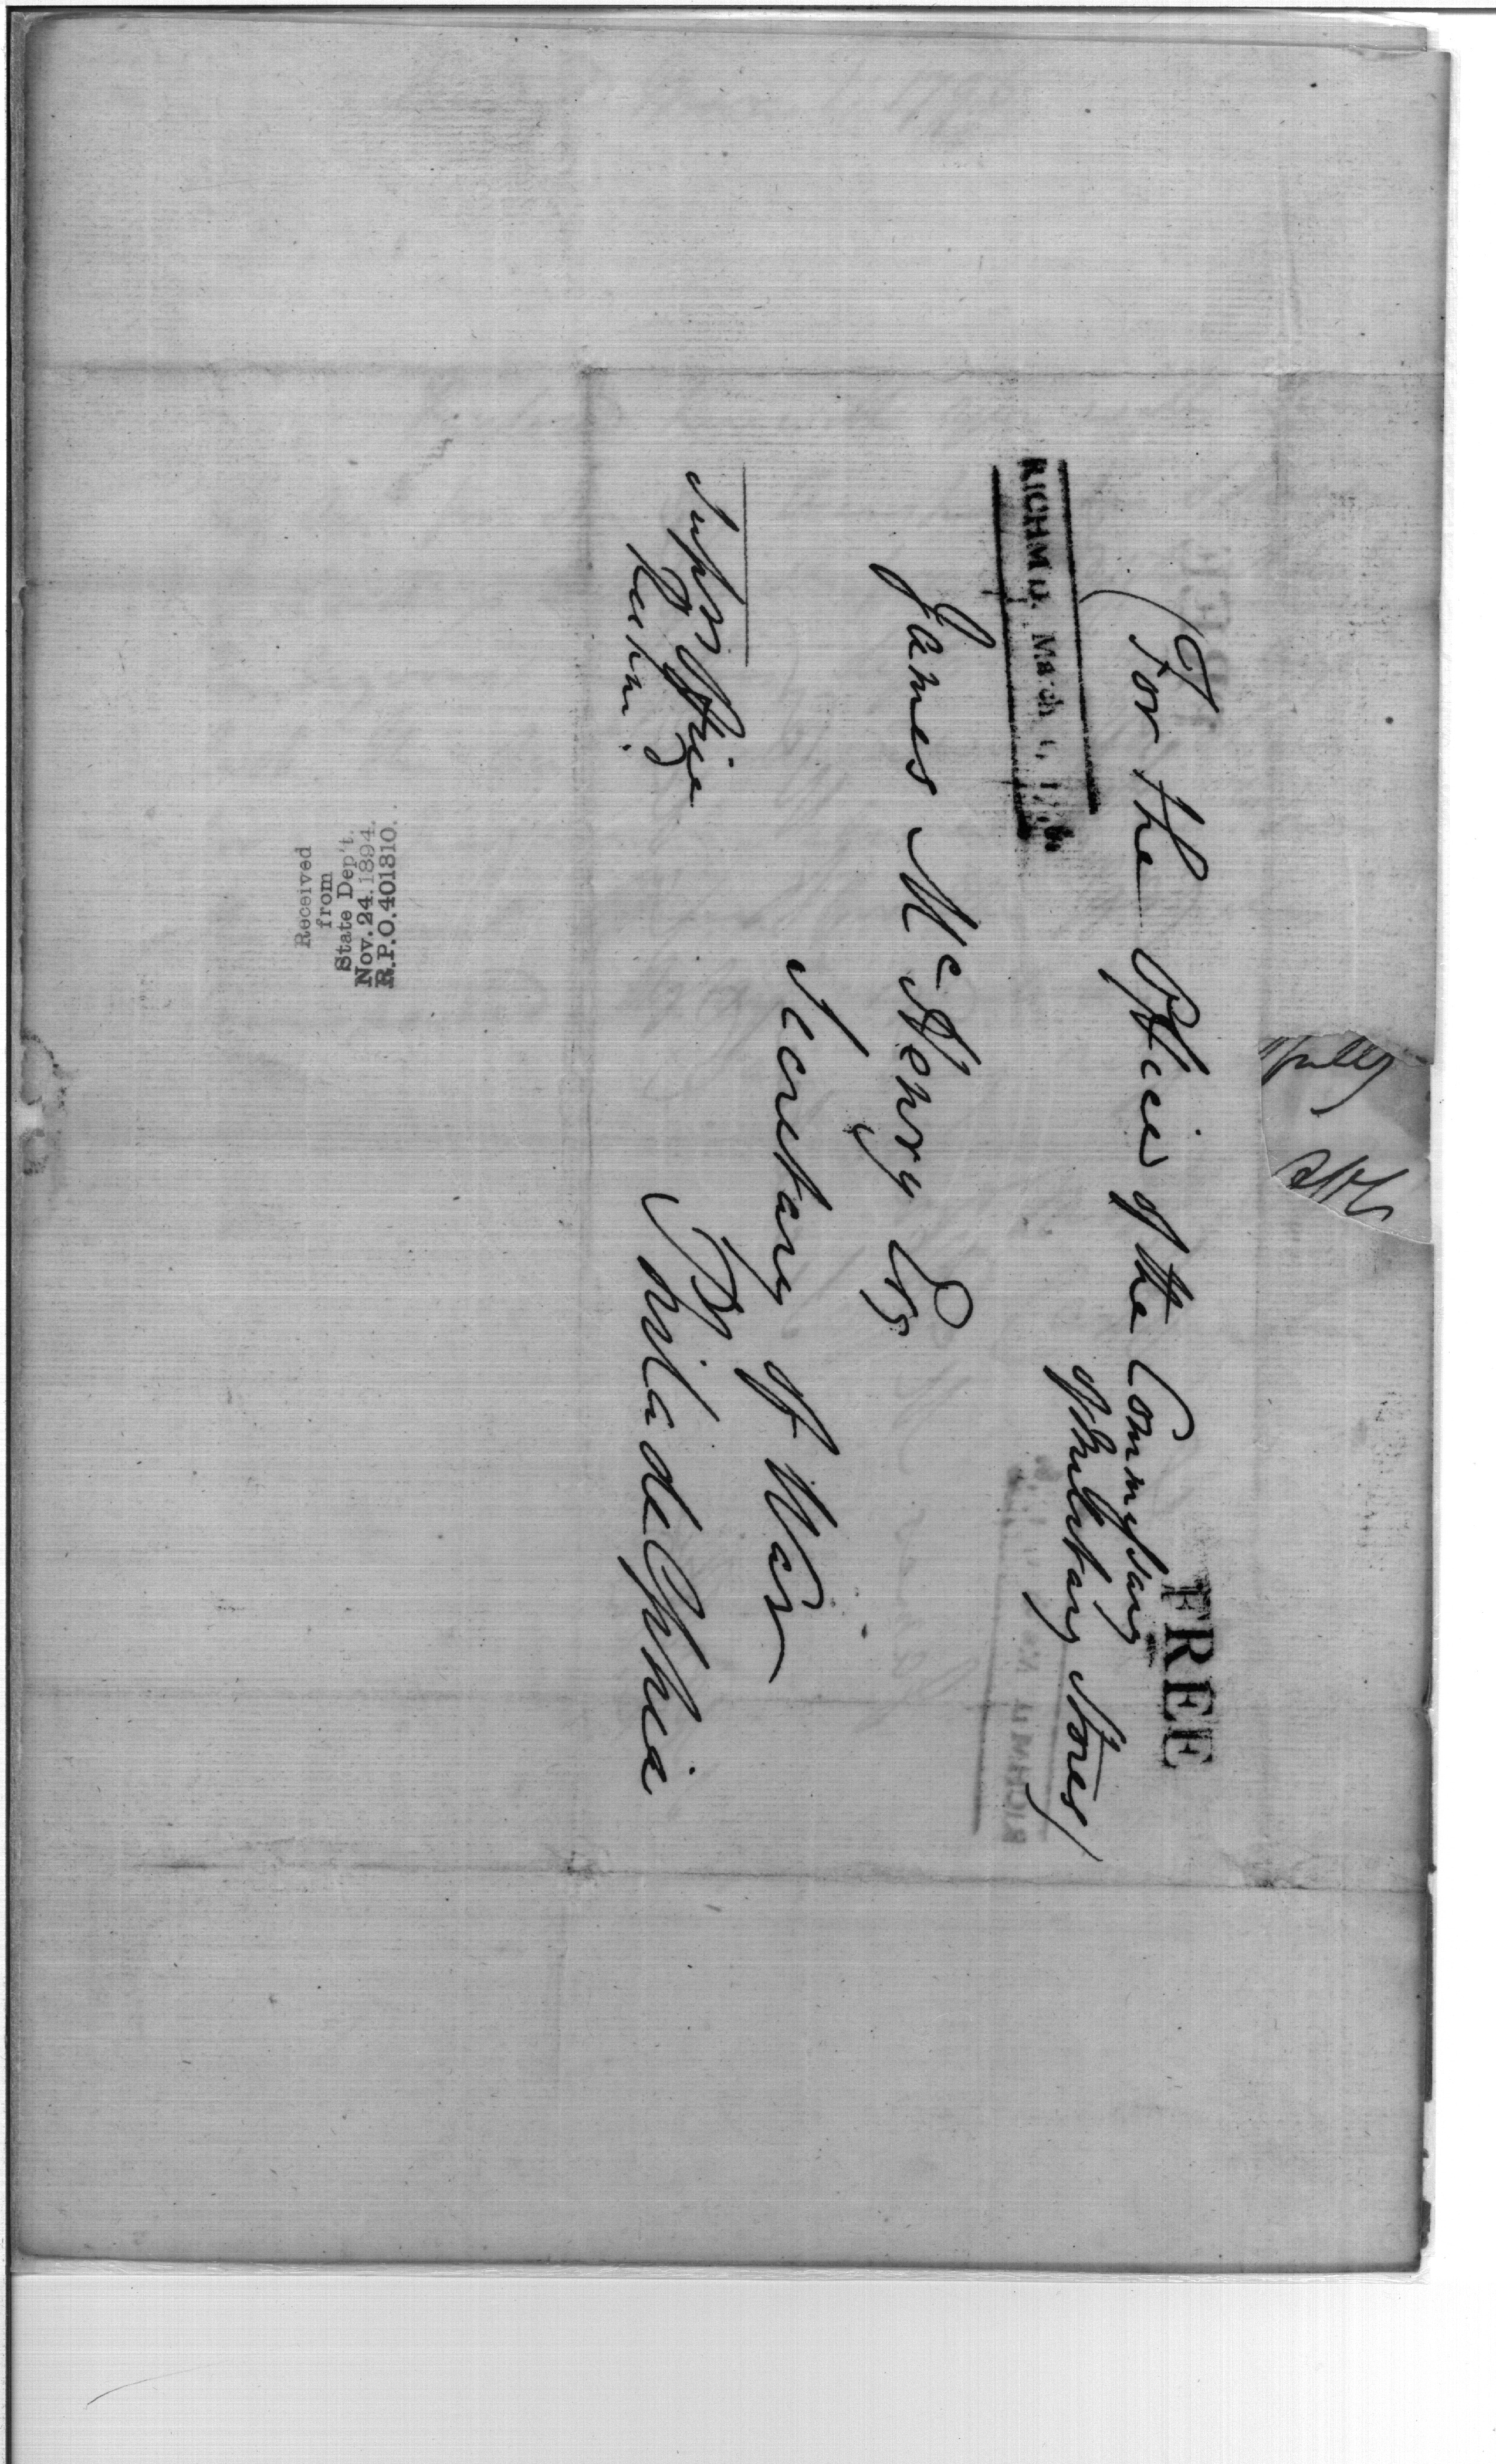 (For the Office of the Commissary
of Military Stores)
FREE
RICHMD. March
James McHenry Esq
Secretary of War
Philadelphia
Supr Office
Richm.
Received
from
State Dep't.
Nov. 24. 1894.
R.P.O. 401310.